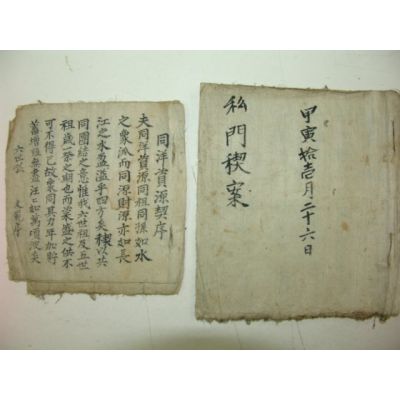 同洋資源契序
夫同洋資源同祖同孫如水
之衆派而同源財源亦如長
江之水盈溢乎四方矣稧以共
同團結之意惟我六世祖及五世
祖歲一祭之期也而粢盛之供不
可不得已故衆同其力年加貯
蓄增殖無盡汪汪如萬頃波矣
六世孫
序
甲寅拾壹月二十六日
私門稧案